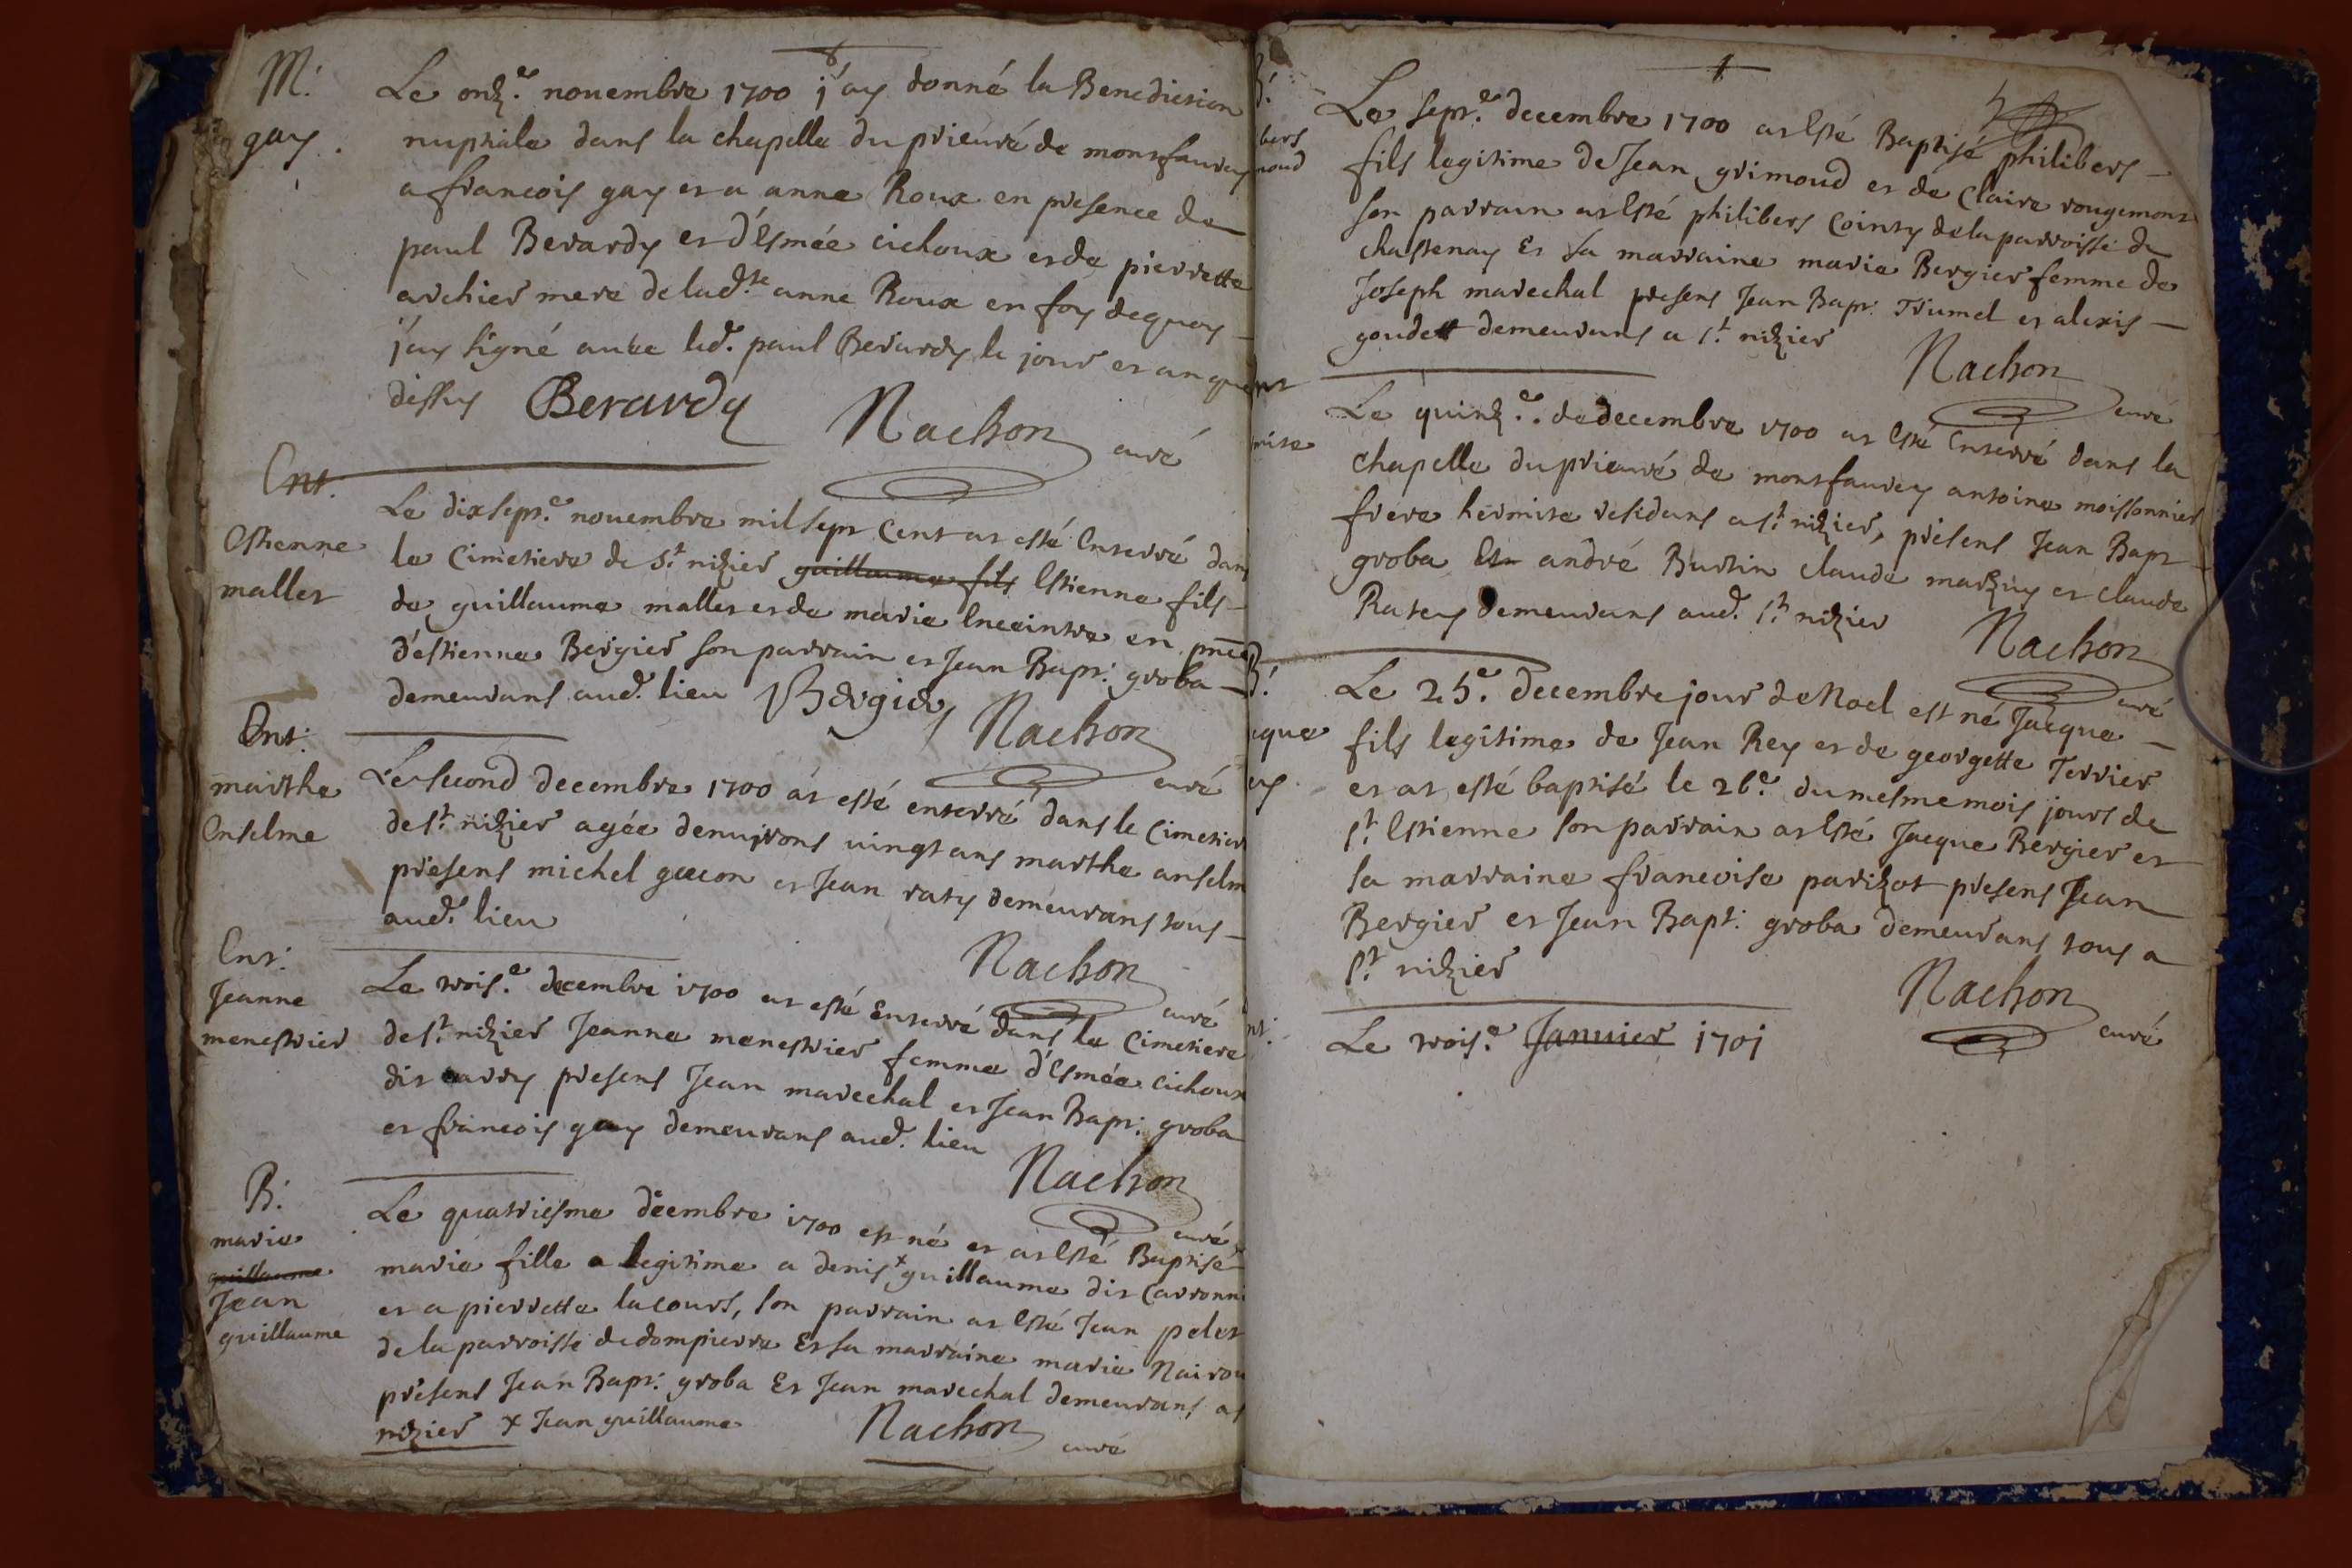 M.
gay.
Le onz.e novembre 1700 j'ay donné la Benediction
nuptiale dans la chapelle du prieuré de montfavrey
a francois gay et a anne Roux en presence de
paul Berardy et d'Esmée cichoux et de pierrette
archier mere de lad.te anne Roux en foy de quoy
j'ay signé avec led. paul Berardy le jour et an que
dessus Berardy Nachon curé
Ent:
Estienne
mallet
Le dixsept.e novembre mil sept Cent at esté Enterré dans
le Cimetiere de St. nizier guillaume fils Estienne fils
de guillaume mallet et de marie Enceintre en pnce
d'estienne Bergier son parrain et Jean Bapt: groba
demeurans aud. lieu Bergier Nachon curé
Ent:
marthe
Enselme
Le second decembre 1700 at esté enterré dans le Cimetier
de St. nizier agée denvirons vingt ans marthe anselm
presens michel gacon et Jean raty demeurans tous
aud. lieu
Nachon curé
Ent:
Jeanne
menestrier
Le trois.e decembre 1700 at esté Enterré dans le Cimetiere
de St. nizier Jeanne menestrier femme d'Esmée cichoux
dit carry presens Jean marechal et Jean Bapt: groba
et francois gay demeurans aud. lieu
Nachon curé
B:
marie
guillaume
Jean
guillaume
Le quatriesme decembre 1700 est né et at Esté Baptisé
marie fille a legitime a denis x guillaume dit Carronni
et a pierrette lacourt, son parrain at Esté Jean pelet
de la parroisse de dompierre Et sa marraine marie Nairou
presens Jean Bapt: groba Et Jean marechal demeurans a St
nizier x Jean guillaume Nachon curé
B:
bert
moud
Le sept.e decembre 1700 at Esté Baptisé philibert
fils legitime de Jean grimoud et de Claire rougemont
son parrain at Esté philibert Cointy de la parroisse de
chastenay Et sa marraine marie Bergier femme de
Joseph marechal presens Jean Bapt: Trumel et alexis
goudet demeurans a St. nizier
Nachon curé
nt
mite
Le quinz.e de decembre 1700 at Esté Enterré dans la
chapelle du prieuré de montfavrey antoine moissonnier
frere hermite residant a St. nizier, presens Jean Bapt
groba Et andré Burtin claude mazuy et claude
Ratey demeurans aud. St. nizier
Nachon curé
B:
cque
ey
Le 25.e decembre jour de Noel est né Jacque
fils legitime de Jean Rey et de georgette Terrier
et at esté baptisé le 26.e du mesme mois jours de
St. Estienne son parrain at Esté Jacque Bergier et
sa marraine francoise parizot presens Jean
Bergier et Jean Bapt: groba demeurans tous a
St. nizier
Nachon curé
nt:
Le trois.e Janvier 1701